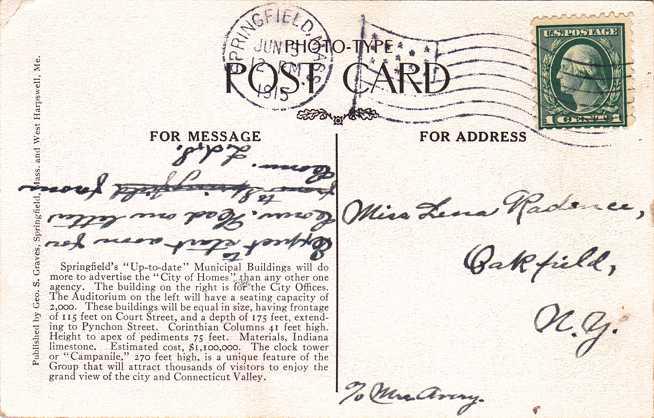 SPRINGFIELD, MASS.
JUN
12 M
1915
U.S.POSTAGE
1 CENT 1
PHOTO-TYPE
POST CARD
FOR MESSAGE
FOR ADDRESS
Expect to start soon for
Conn. Had one letter
from Springfield to from
Conn.
Miss Lena Radence,
Oakfield,
N.Y.
℅ Mrs Avery.
Springfield's "Up-to-date" Municipal Buildings will do
more to advertise the "City of Homes" than any other one
agency. The building on the right is for the City Offices.
The Auditorium on the left will have a seating capacity of
2,000. These buildings will be equal in size, having frontage
of 115 feet on Court Street, and a depth of 175 feet, extend-
ing to Pynchon Street. Corinthian Columns 41 feet high.
Height to apex of pediments 75 feet. Materials, Indiana
limestone. Estimated cost, $1,100,000. The clock tower
or "Campanile," 270 feet high, is a unique feature of the
Group that will attract thousands of visitors to enjoy the
grand view of the city and Connecticut Valley.
Published by Geo. S. Graves, Springfield, Mass. and West Harpswell, Me.